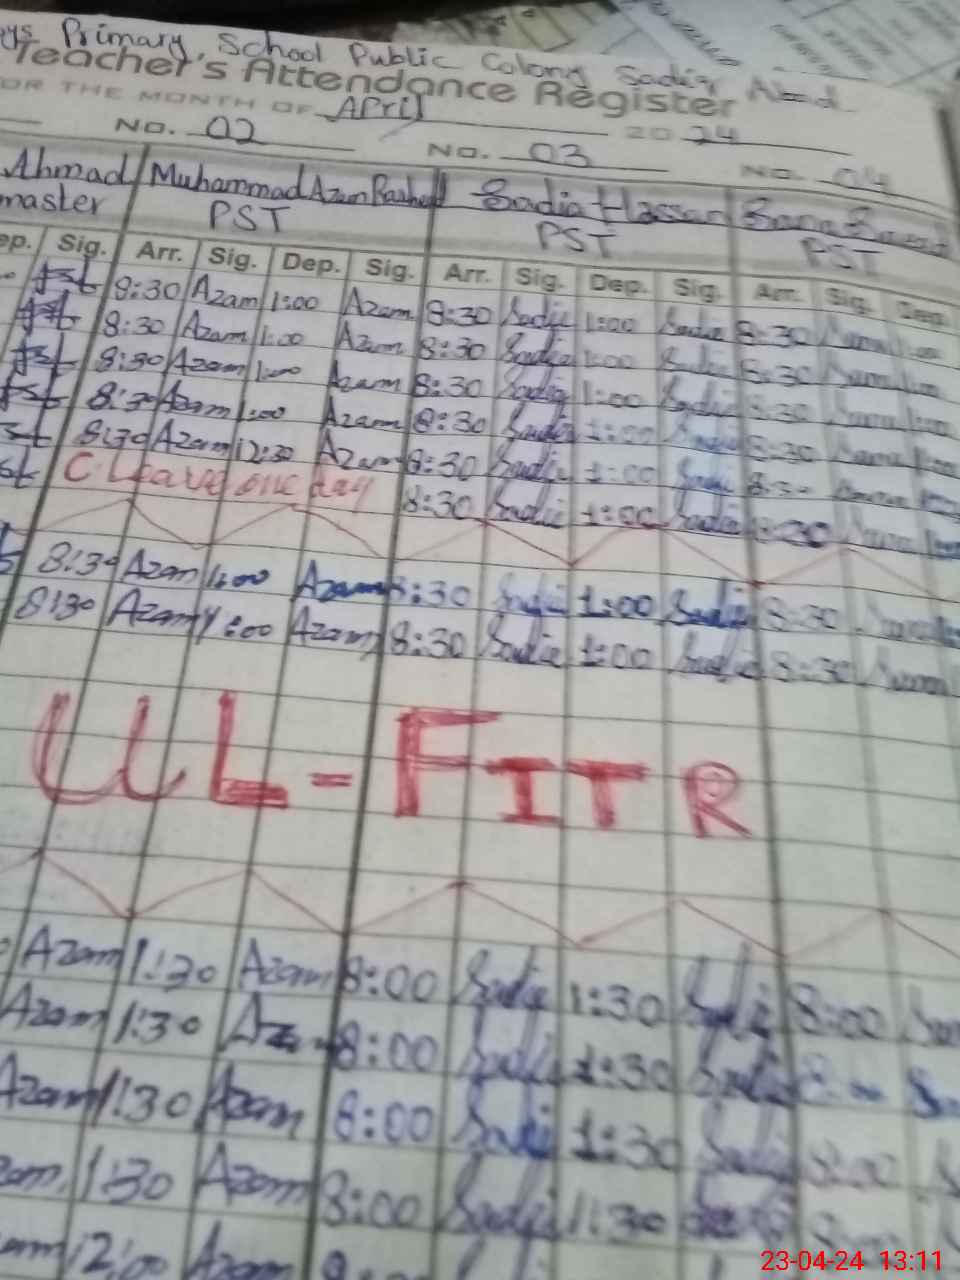 Primary School Public Colony Sadiq Abad
Teacher's Attendance Register
FOR THE MONTH OF April 2024
No. 02 No. 03 No. 04
Ahmad Muhammad Azam Rasheed Sadia Hassan
master PST PST PST
Dep. Sig. Arr. Sig. Dep. Sig. Arr. Sig. Dep. Sig. Arr. Sig. Dep.
8:30 Azam 1:00 Azam 8:30 Sadia 1:00 Sadia 8:30
8:30 Azam 1:00 Azam 8:30 Sadia 1:00 Sadia 8:30
8:30 Azam 1:00 Azam 8:30 Sadia 1:00 Sadia 8:30
8:30 Azam 1:00 Azam 8:30 Sadia 1:00 Sadia 8:30
8:30 Azam 12:30 Azam 8:30 Sadia 1:00 Sadia 8:30
C. Leave one day 8:30 Sadia 1:00 Sadia 8:30
8:30 Azam 1:00 Azam 8:30 Sadia 1:00 Sadia 8:30
8:30 Azam 1:00 Azam 8:30 Sadia 1:00 Sadia 8:30
UL-FITR
Azam 1:30 Azam 8:00 Sadia 1:30 Sadia 8:00
Azam 1:30 Azam 8:00 Sadia 1:30 Sadia
Azam 1:30 Azam 8:00 Sadia 1:30 Sadia 8:00
1:30 Azam 8:00 Sadia 1:30
12:00 Azam
23-04-24 13:11